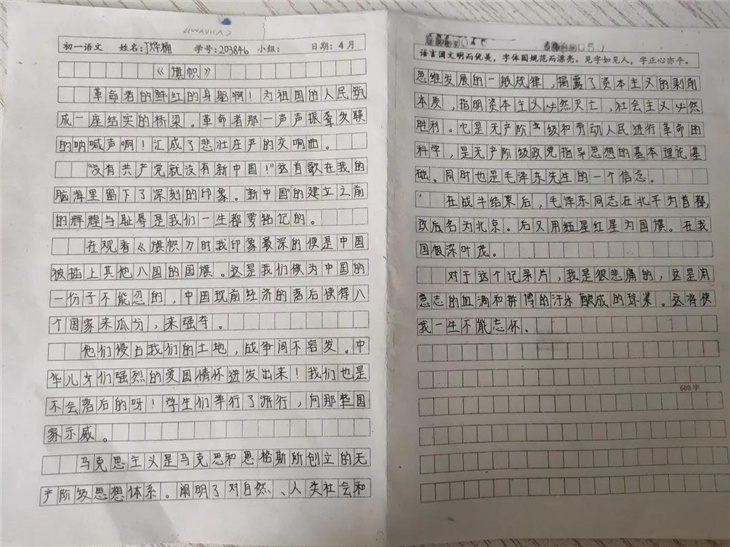 初一语文 姓名: 学号:203846 小组: 日期:4月
《旗帜》
革命者的鲜红的身躯啊!为祖国的人民筑
成一座结实的桥梁。革命者那一声声振聋发聩
的呐喊声啊!汇成了悲壮庄严的交响曲。
"没有共产党就没有新中国!"这首歌在我的
脑海里留下了深刻的印象。新中国的建立之前
的辉煌与耻辱是我们一生都要铭记的。
在观看《旗帜》时我印象最深的便是中国
被插上其他八国的国旗。这是我们做为中国的
一份子不能忍的,中国以前经济的落后使得八
个国家来瓜分,来强夺。
他们侵占我们的土地,战争间不容发。中
华儿女们强烈的爱国情怀迸发出来!我们也是
不会落后的呀!学生们举行了游行,向那些国
家示威。
马克思主义是马克思和恩格斯所创立的无
产阶级思想体系。阐明了对自然、、人类社会和
语言国文明而优美,字体国规范而漂亮。见字如见人,字正心亦平。
思维发展的一般规律,揭露了资本主义的剥削
本质,指明资本主义必然灭亡,社会主义必然
胜利。它是无产阶级和劳动人民进行革命的
科学,是无产阶级政党指导思想的基本理论基
础。同时也是毛泽东先生的一个信念。
在战斗结束后,毛泽东同志在北平为首都,
改后名为北京。后又用红星为国旗。在我
国根深叶茂。
对于这个记录片,我是很悲痛的,这是用
意志的血滴和拼搏的汗水酿成的琼浆。这将使
我一生不能忘怀。
600字